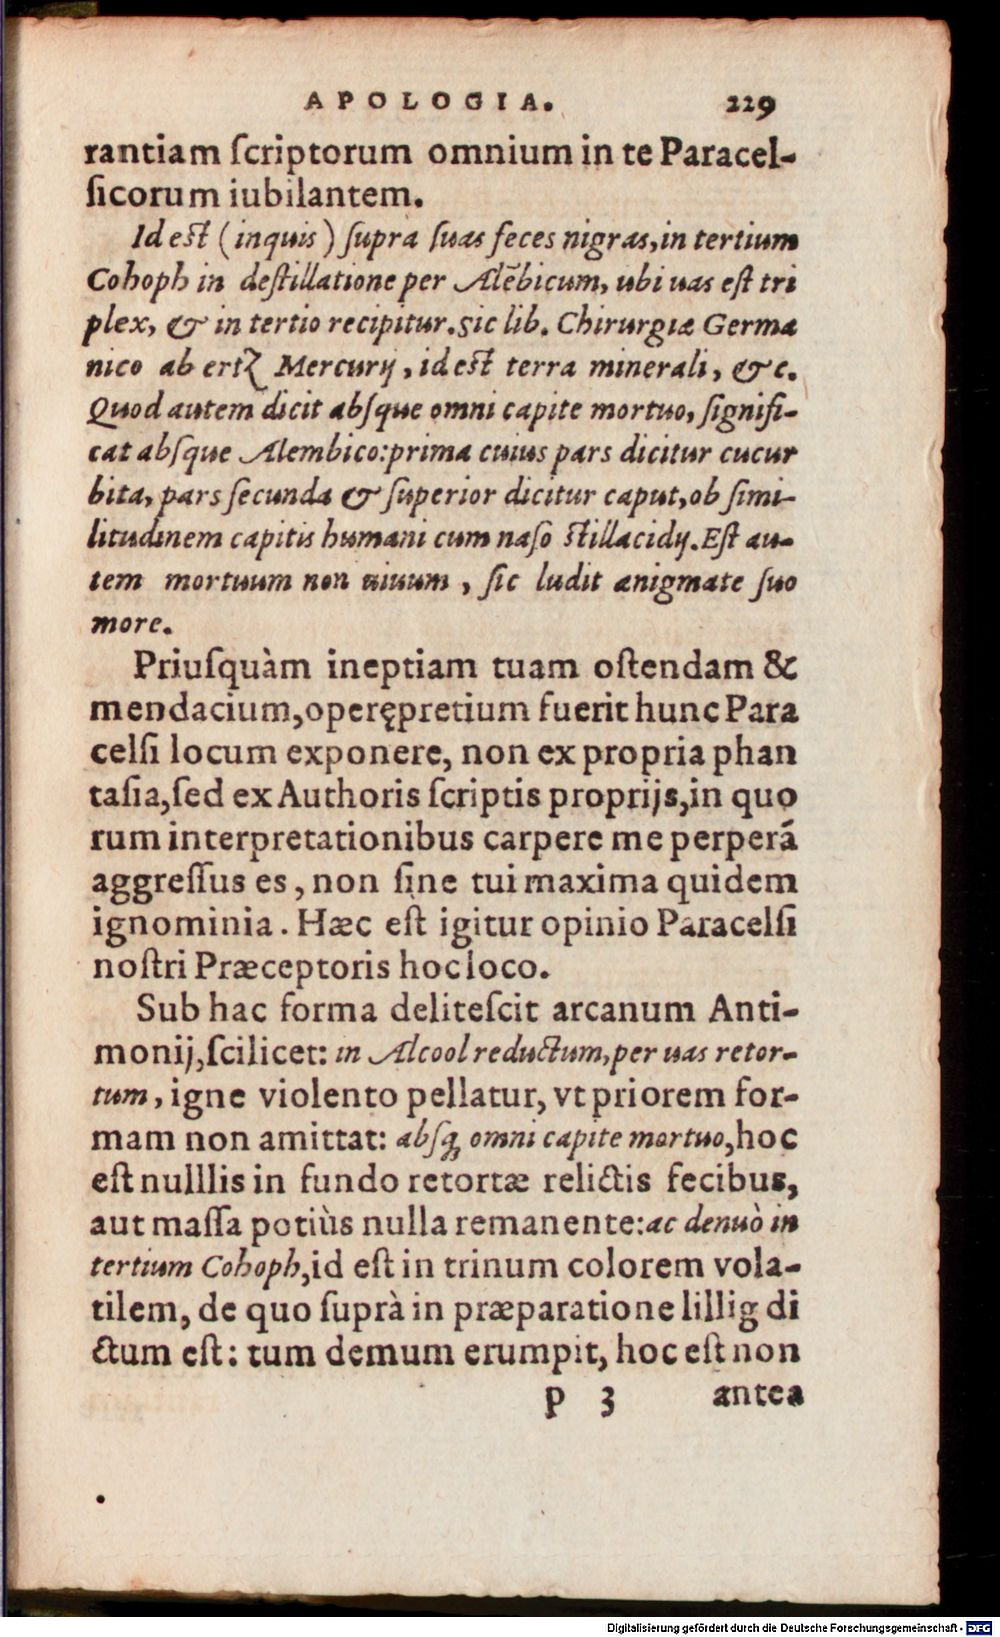 APOLOGIA. 229
rantiam ſcriptorum omnium in te Paracel-
ſicorum iubilantem.
Id eſt (inquis) ſupra ſuas feces nigras, in tertium
Cohoph in deſtillatione per Alēbicum, ubi uas eſt tri
plex, & in tertio recipitur. Sic lib. Chirurgiæ Germa
nico ab ertz Mercurij, id eſt terra minerali, &c.
Quod autem dicit abſque omni capite mortuo, ſignifi-
cat abſque Alembico: prima cuius pars dicitur cucur
bita, pars ſecunda & ſuperior dicitur caput, ob ſimi-
litudinem capitis humani cum naſo ſtillacidij. Eſt au-
tem mortuum non uiuum, ſic ludit ænigmate ſuo
more.
Priuſquàm ineptiam tuam oſtendam &
mendacium, operępretium fuerit hunc Para
celſi locum exponere, non ex propria phan
taſia, ſed ex Authoris ſcriptis proprijs, in quo
rum interpretationibus carpere me perperā
aggreſſus es, non ſine tui maxima quidem
ignominia. Hæc eſt igitur opinio Paracelſi
noſtri Præceptoris hoc loco.
Sub hac forma deliteſcit arcanum Anti-
monij, ſcilicet: in Alcool reductum, per uas retor-
tum, igne violento pellatur, vt priorem for-
mam non amittat: abſq; omni capite mortuo, hoc
eſt nulllis in fundo retortæ relictis fecibus,
aut maſſa potiùs nulla remanente: ac denuò in
tertium Cohoph, id eſt in trinum colorem vola-
tilem, de quo ſuprà in præparatione lillig di
ctum eſt: tum demum erumpit, hoc eſt non
p 3 antea
Digitalisierung gefördert durch die Deutsche Forschungsgemeinschaft - DFG